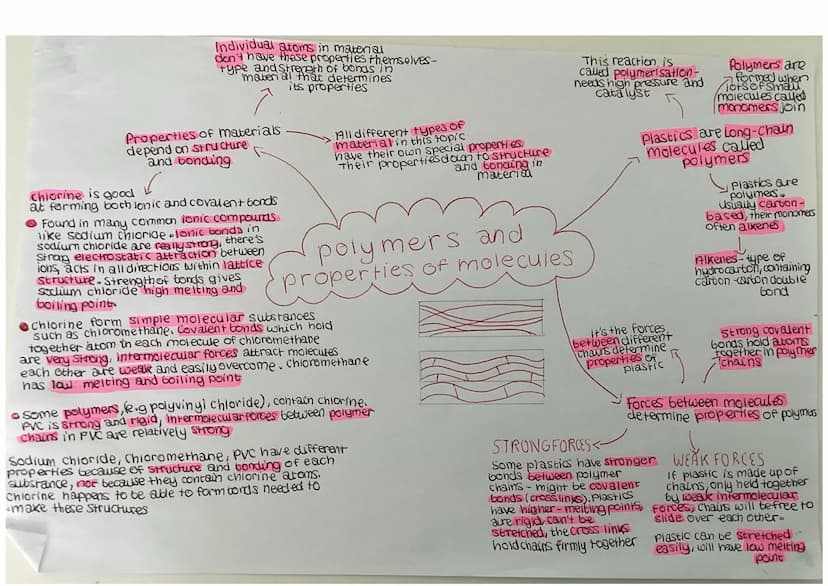 Individual atoms in material
don't have these properties themselves-
type and strength of bonds in
material that determines
its properties
This reaction is
called polymerisation-
needs high pressure and
catalyst
Polymers are
formed when
lots of small
molecules called
monomers join
Properties of materials
depend on structure
and bonding
All different types of
material in this topic
have their own special properties.
Their properties down to structure
and bonding in
material
Plastics are long-chain
molecules called
polymers
chlorine is good
at forming both ionic and covalent bonds
Found in many common ionic compounds
like sodium chloride. Ionic bonds in
sodium chloride are really strong, there's
strong electrostatic attraction between
ions, acts in all directions within lattice
structure. Strength of bonds gives
sodium chloride high melting and
boiling point.
polymers and
properties of molecules
Plastics are
polymers.
usually carbon-
based, their monomers
often alkenes
Alkenes - type of
hydrocarbon, containing
carbon-carbon double
bond
chlorine form simple molecular substances
such as chloromethane. Covalent bonds which hold
together atom in each molecule of chloromethane
are very strong, intermolecular forces attract molecules
each other are weak and easily overcome. Chloromethane
has low melting and boiling point
It's the forces
between different
chains determine
properties of
plastic
strong covalent
bonds hold atoms
together in polymer
chains
some polymers, (e.g polyvinyl chloride), contain chlorine.
PVC is strong and rigid, intermolecular forces between polymer
chains in PVC are relatively strong
Forces between molecules
determine properties of polymers
Sodium chloride, chloromethane, PVC have different
properties because of structure and bonding of each
substance, not because they contain chlorine atoms.
Chlorine happens to be able to form bonds needed to
make these structures
STRONG FORCES
Some plastics have stronger
bonds between polymer
chains - might be covalent
bonds (crosslinks). Plastics
have higher-melting points,
are rigid, can't be
stretched, the cross links
hold chains firmly together
WEAK FORCES
if plastic is made up of
chains, only held together
by weak intermolecular
forces, chains will be free to
slide over each other.
Plastic can be stretched
easily, will have low melting
point